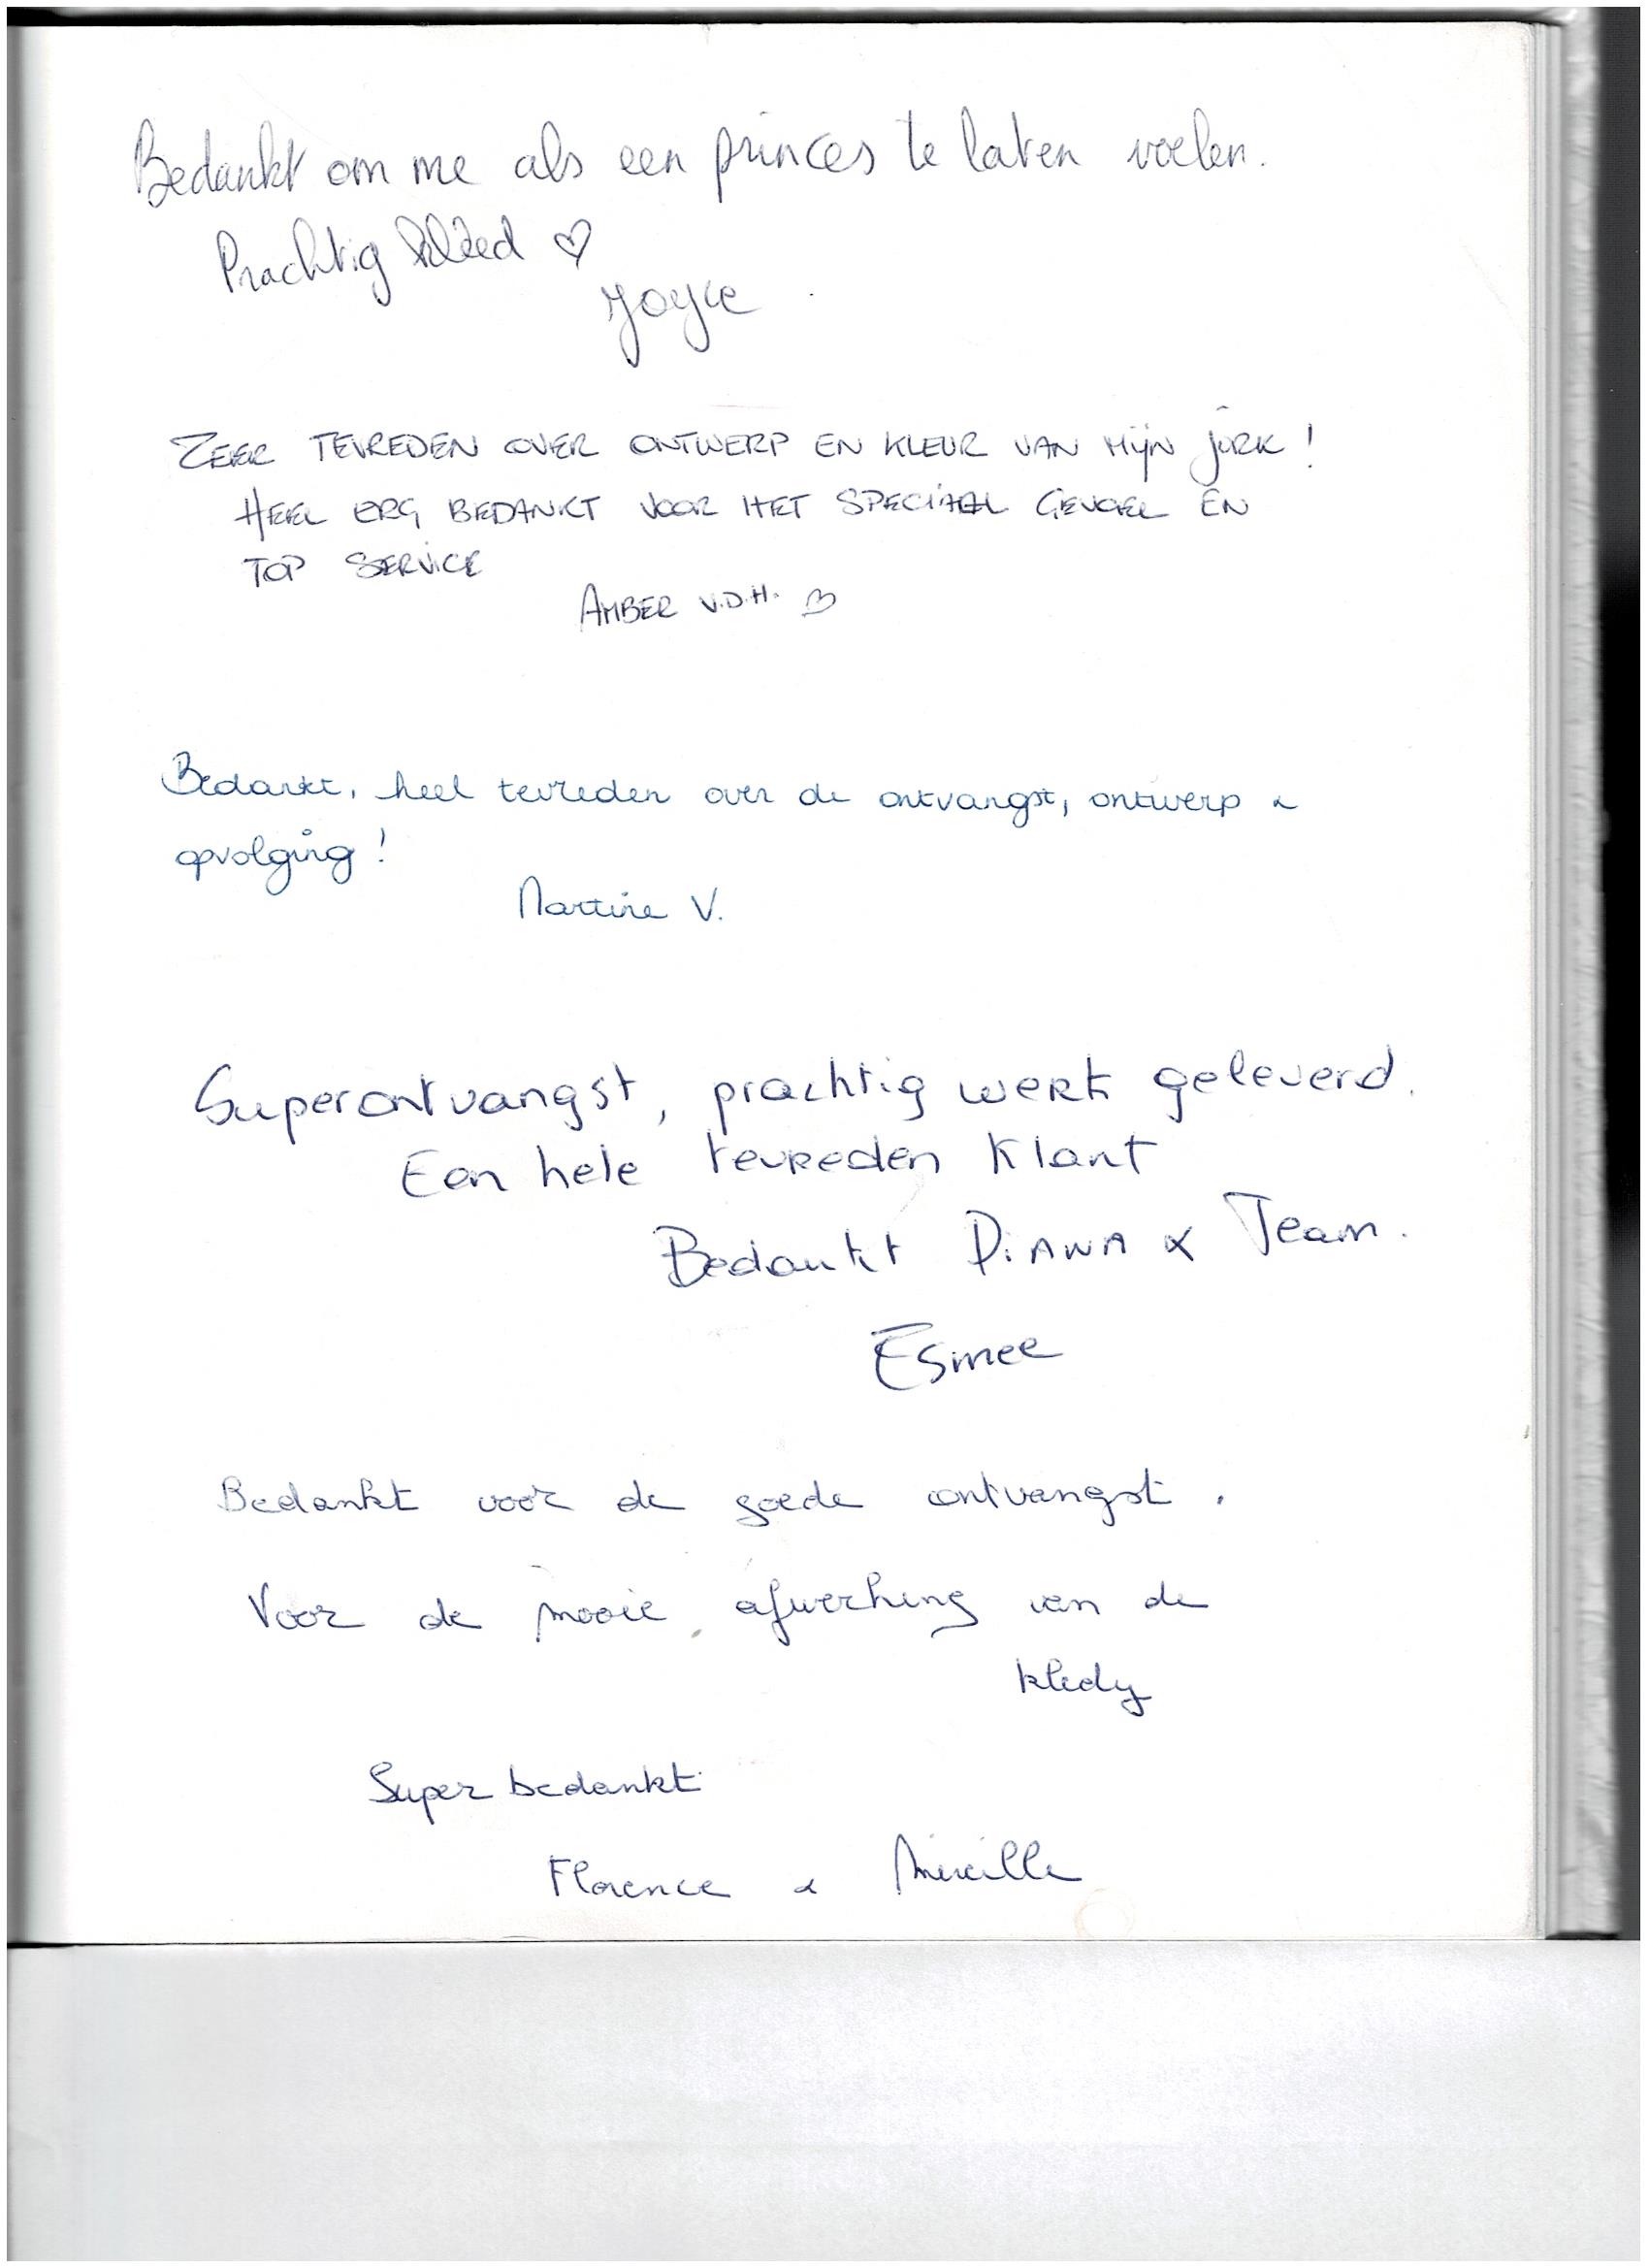 Bedankt om me als een princes te laten voelen.
Prachtig kleed ♡
Joyce
ZEER TEVREDEN OVER ONTWERP EN KLEUR VAN MIJN JURK!
HEEL ERG BEDANKT VOOR HET SPECIAAL GEVOEL EN
TOP SERVICE
AMBER V.D.H. ♡
Bedankt, heel tevreden over de ontvangst, ontwerp &
opvolging!
Martine V.
Superontvangst, prachtig werk geleverd.
Een hele tevreden klant
Bedankt DiANA & Team.
Esmee
Bedankt voor de goede ontvangst.
Voor de mooie afwerking van de
kledij
Super bedankt
Florence & Mireille